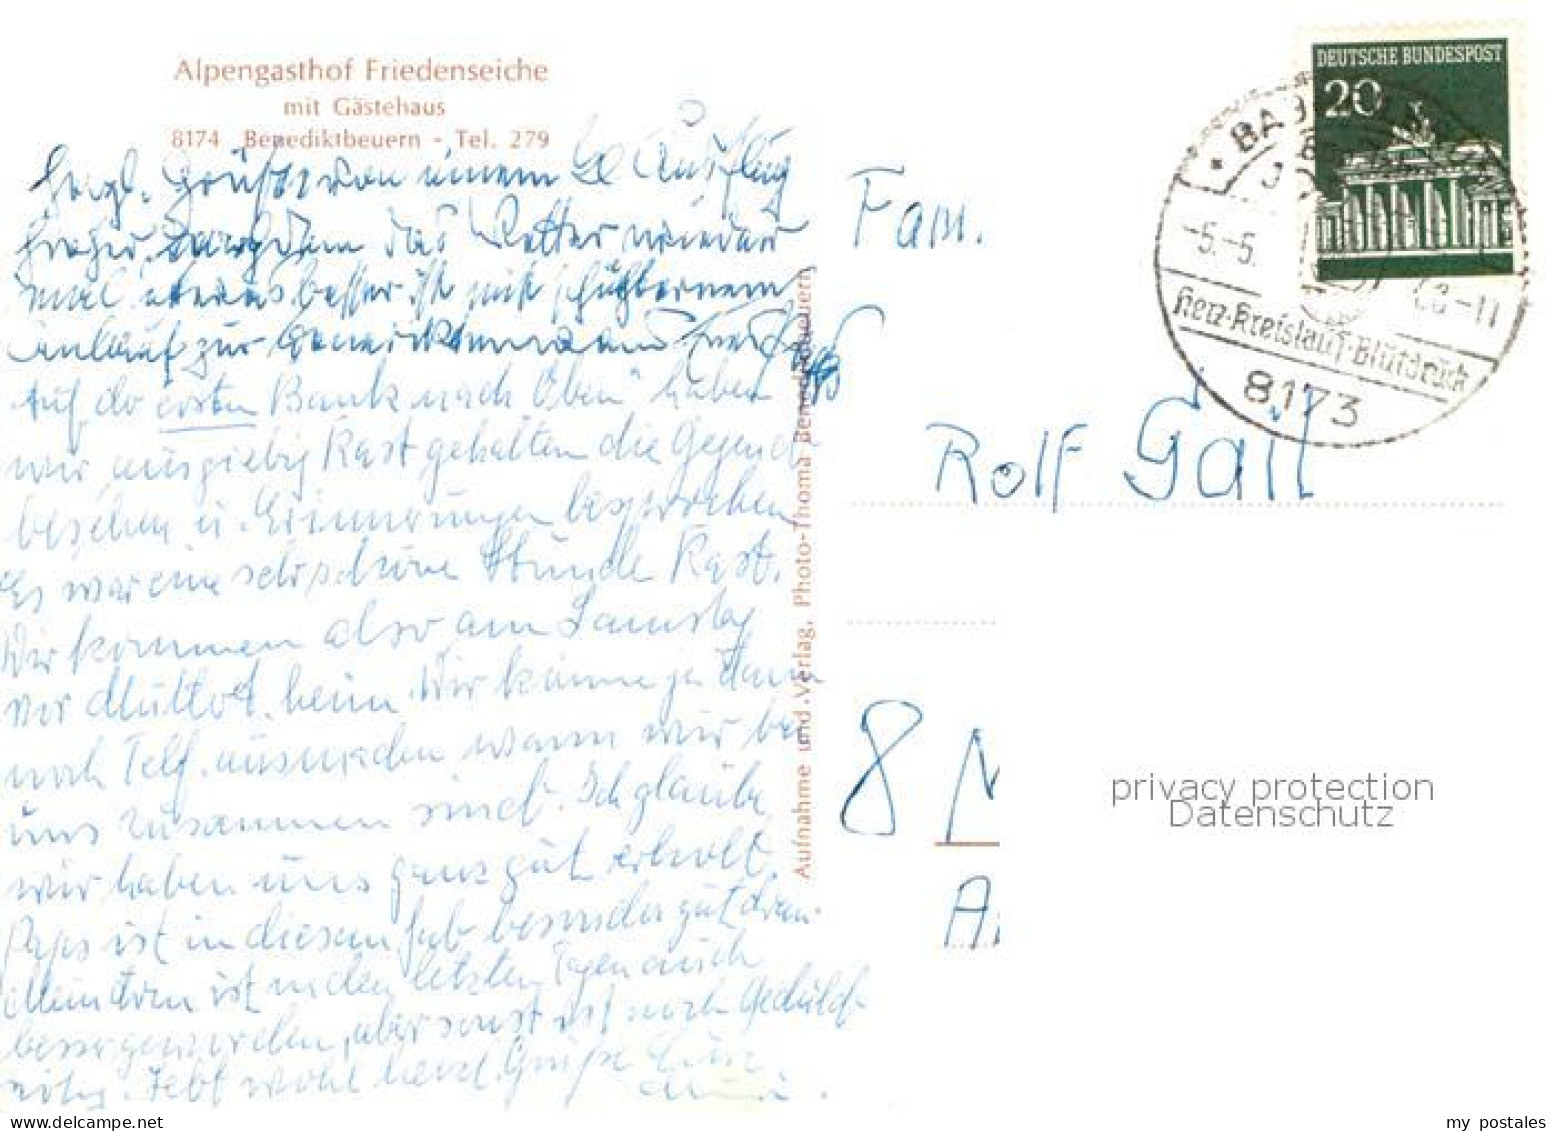 Alpengasthof Friedenseiche
mit Gästehaus
8174 Benediktbeuern - Tel. 279
Herzl. Grüße von einem Ausflug
nachdem das Wetter wieder
mal etwas besser ist mit schüchternem
Anlauf zur
Auf der ersten Bank nach Oben" haben
wir ausgiebig Rast gehalten die Gegend
besehen u. Erinnerungen besprochen
Es war eine sehr schöne Stunde Rast.
Wir kommen also am Samstag
vor Muttert. heim. Wir können ja dann
noch Telf. ausmachen wann wir bei
uns zusammen sind. Ich glaube
wir haben uns ganz gut erholt.
Papa ist in diesem besonders gut dran.
Mein ist in den letzten Tagen auch
besser geworden, aber sonst ist noch Geduld
nötig. Lebt wohl herzl. Grüße Eure
Aufnahme und Verlag, Photo-Thoma Benediktbeuern
DEUTSCHE BUNDESPOST
20
BAD
-5.-5.
-11
Herz-Kreislauf-Blutdruck
8173
Fam.
Rolf Gail
8 M
A
privacy protection
Datenschutz
my postales